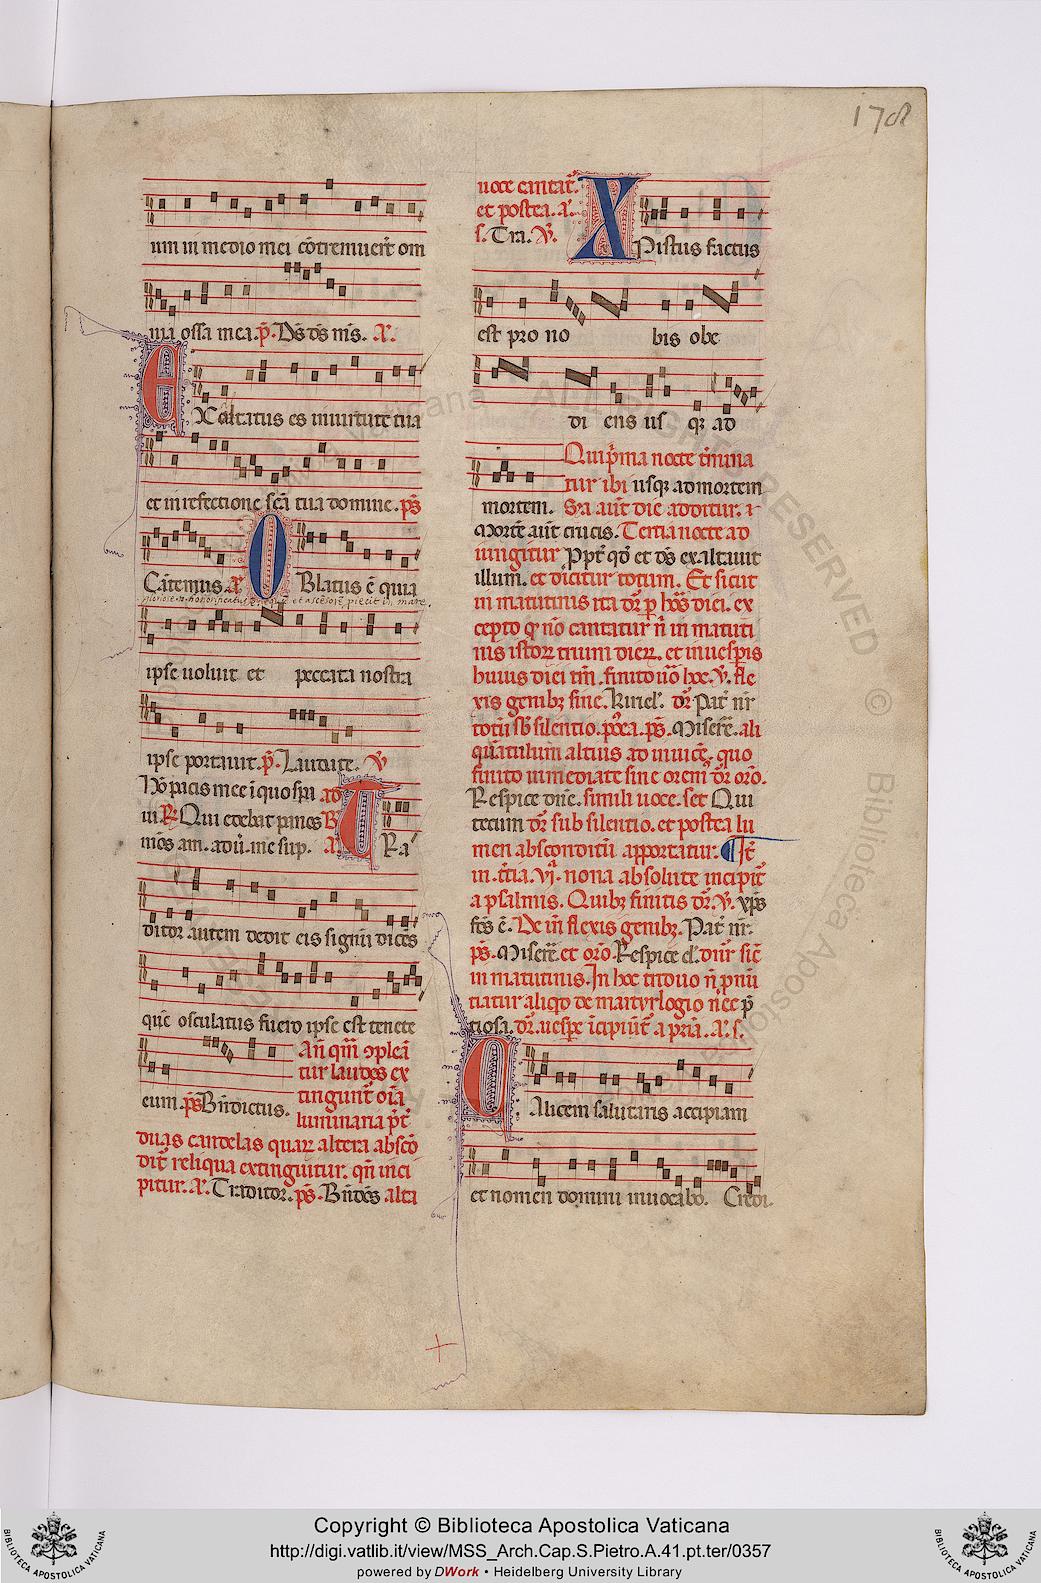 178
um in medio mei cōtremuer̄t om
nia ossa mea. p̄. D̄s d̄s m̄s. A.
EXaltatus es in uirtute tua
et in refectione scā tua domine. p̄s
Cātemus. a. OBlatus ē quia
ipse uoluit et peccata nostra
ipse portauit. p̄. Laudate. V̄
Hō pacis mee ī quo spāi ad
ui R. Qui edebat panes B
mōs am. adū. me sup. a. TRa
ditor autem dedit eis signū dicēs
quē osculatus fuero ipse est tenete
eum. p̄s Bn̄dictus.
Añ qm̄ ↄpleā
tur laudes ex
tinguūt̄ oīa
luminaria p̄t̄
duas candelas quaꝝ altera abscō
dit̄ reliqua extinguitur. qn̄ inci
pitur. A. Traditor. p̄s. Bn̄dc̄s alta
uoce cantat̄.
et postea. a.
s. Tra. V̄.
XPistus factus
est pro no bis obe
di ens us qꝫ ad
mortem.
Qui p̄ma nocte t̄mina
tur ibi usqꝫ ad mortem
S̄a aūt die additur. ⁊
Mortē aūt crucis. Tertia nocte ad
iungitur Ppt̄ qd̄ et d̄s exaltauit
illum. et dicitur totum. Et sicut
in matutinis ita d̄r p̄ hōs diei. ex
cepto qꝫ nō cantatur n̄ in matuti
nis istoꝝ trium dieꝝ. et in uesp̄is
huius diei tm̄. finito ūo hoc. V̄. fle
xis genibꝫ sine. Kiriel'. d̄r Pat̄ nr̄
totū sb̄ silentio. p̄ōxa. p̄s. Miserē. ali
quātulum altius ad inuicē. quo
finito inmediate sine orem̄ d̄r orō.
Respice dn̄e. simili uoce. set Qui
tecum d̄r sub silentio. et postea lu
men absconditū apportatur. ¶ It̄
in. t̄cia. VJ. nona absolute incipit̄
a psalmis. Quibꝫ finitis d̄r. V̄. xp̄s
fc̄s ē. De īn flexis genibꝫ. Pat̄ nr̄.
p̄s. Miserē. et orō. Respice d̄. dn̄r sic̄
in matutinis. In hoc triduo n̄ p̄nū
tiatur aliqd de martyrlogio nēc p̄
tiosa. d̄r. uesp̄e īcipiūt̄ a p̄ria. A. s.
CAlicem salutaris accipiam
et nomen domini inuocabo. Credi.
Copyright © Biblioteca Apostolica Vaticana
http://digi.vatlib.it/view/MSS_Arch.Cap.S.Pietro.A.41.pt.ter/0357
powered by DWork • Heidelberg University Library
BIBLIOTECA APOSTOLICA VATICANA
BIBLIOTECA APOSTOLICA VATICANA